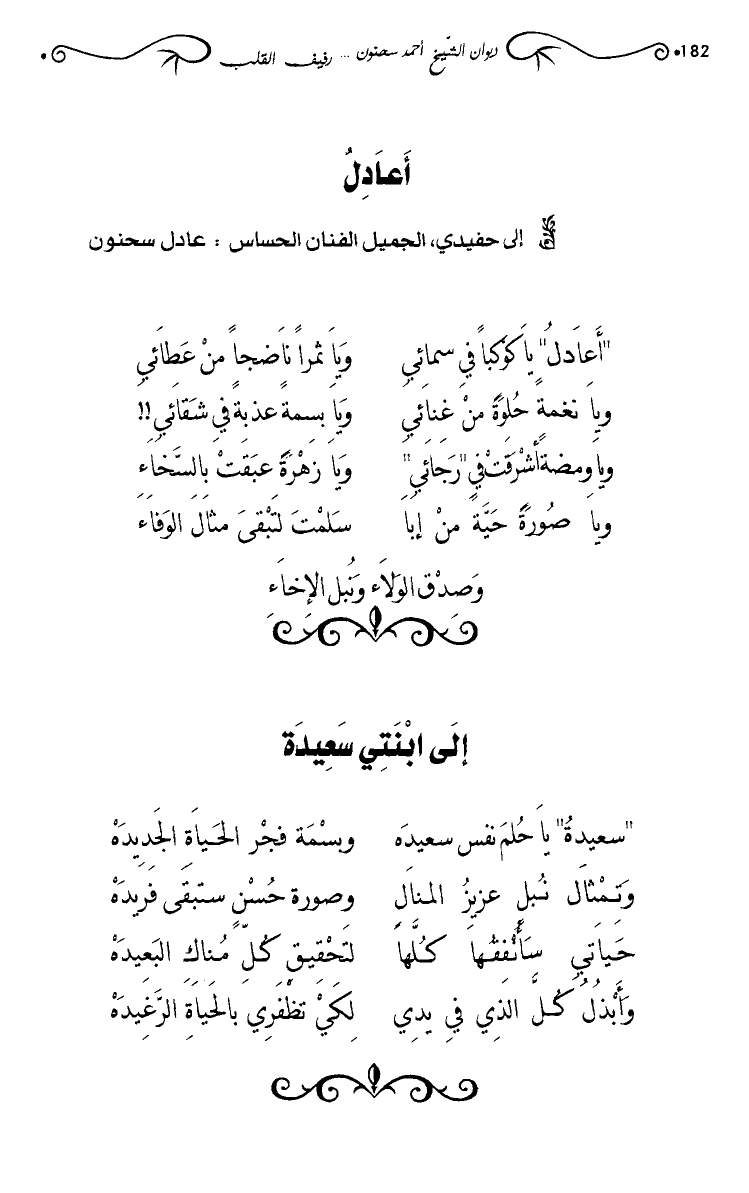 182 ديوان الشيخ أحمد سحنون ... رفيف القلب
أَعَادِلُ
إلى حفيدي، الجميل الفنان الحساس : عادل سحنون
"أَعَادلُ" يا كَوْكباً في سمائي ويا ثمراً ناضجاً منْ عَطائي
ويا نغمةً حُلوَةً منْ غنائي ويا بسمةً عذبة في شَقائي!!
ويا ومضة أَشْرقَتْ في "رَجائي" ويا زهْرَةً عبَقتْ بالسَّخاء
ويا صُورَةً حَيَّة منْ إبا سَلمْتَ لتبْقىَ مثال الوَفاء
وَصدْق الوَلاَء ونُبل الإخاَء
إلَى ابْنَتِي سَعِيدَة
"سعيدةُ" ياَ حُلمَ نفس سعيدَه وبسْمَة فجْر الحَياَةِ الجَديدَهْ
وَتمْثال نُبل عزيزُ المنال وصورة حُسْنٍ ستبقى فريدَهْ
حَياتي سَأُنْفقُها كُلَّها لتَحْقيق كُلّ مُناك البَعيدَهْ
وَأَبْذلُ كُلَّ الذي في يدي لكَيْ تظْفَري بالحَياَة الرَّغيدَهْ